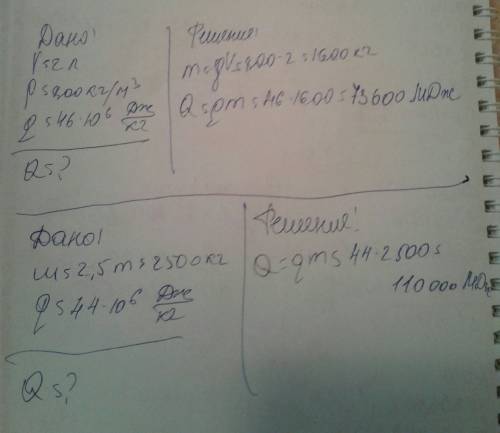 Дано:
V=2 л
ρ=800 кг/м³
q=46·10⁶ Дж/кг
Q=?
Решение:
m=ρV=800·2=1600 кг
Q=qm=46·1600=73600 МДж
Дано:
m=2,5 т=2500 кг
q=44·10⁶ Дж/кг
Q=?
Решение:
Q=qm=44·2500=
110000 МДж